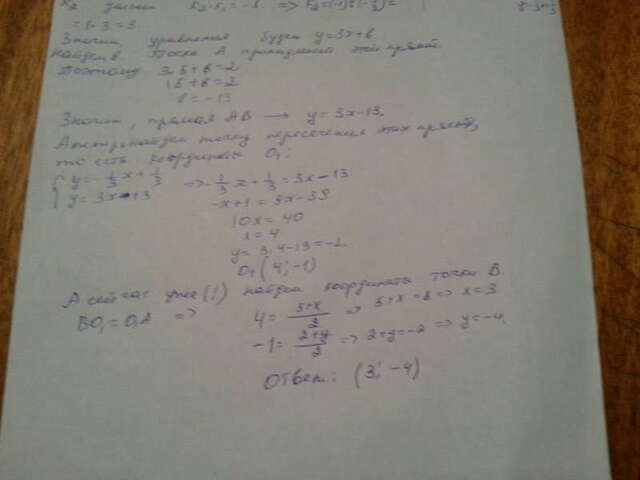 = 1 · 3 = 3
Значит, уравнение будет y=3x+b
Найдём b. Точка A принадлежит этой прямой.
Поэтому 3·5+b=2
15+b=2
b=-13
Значит, прямая AB → y=3x-13.
найдём точку пересечения этих прямых,
то есть координаты O₁:
{ y=-1/3 x+1/3
{ y=3x-13 => -1/3 x+1/3=3x-13
-x+1=9x-39
10x=40
x=4
y=3·4-13=-1.
O₁(4;-1)
А сейчас уже (!) найдём координаты точки B.
BO₁=O₁A => 4=5+x/2 => 5+x=8 => x=3
-1=2+y/2 => 2+y=-2 => y=-4.
Ответ: (3; -4)